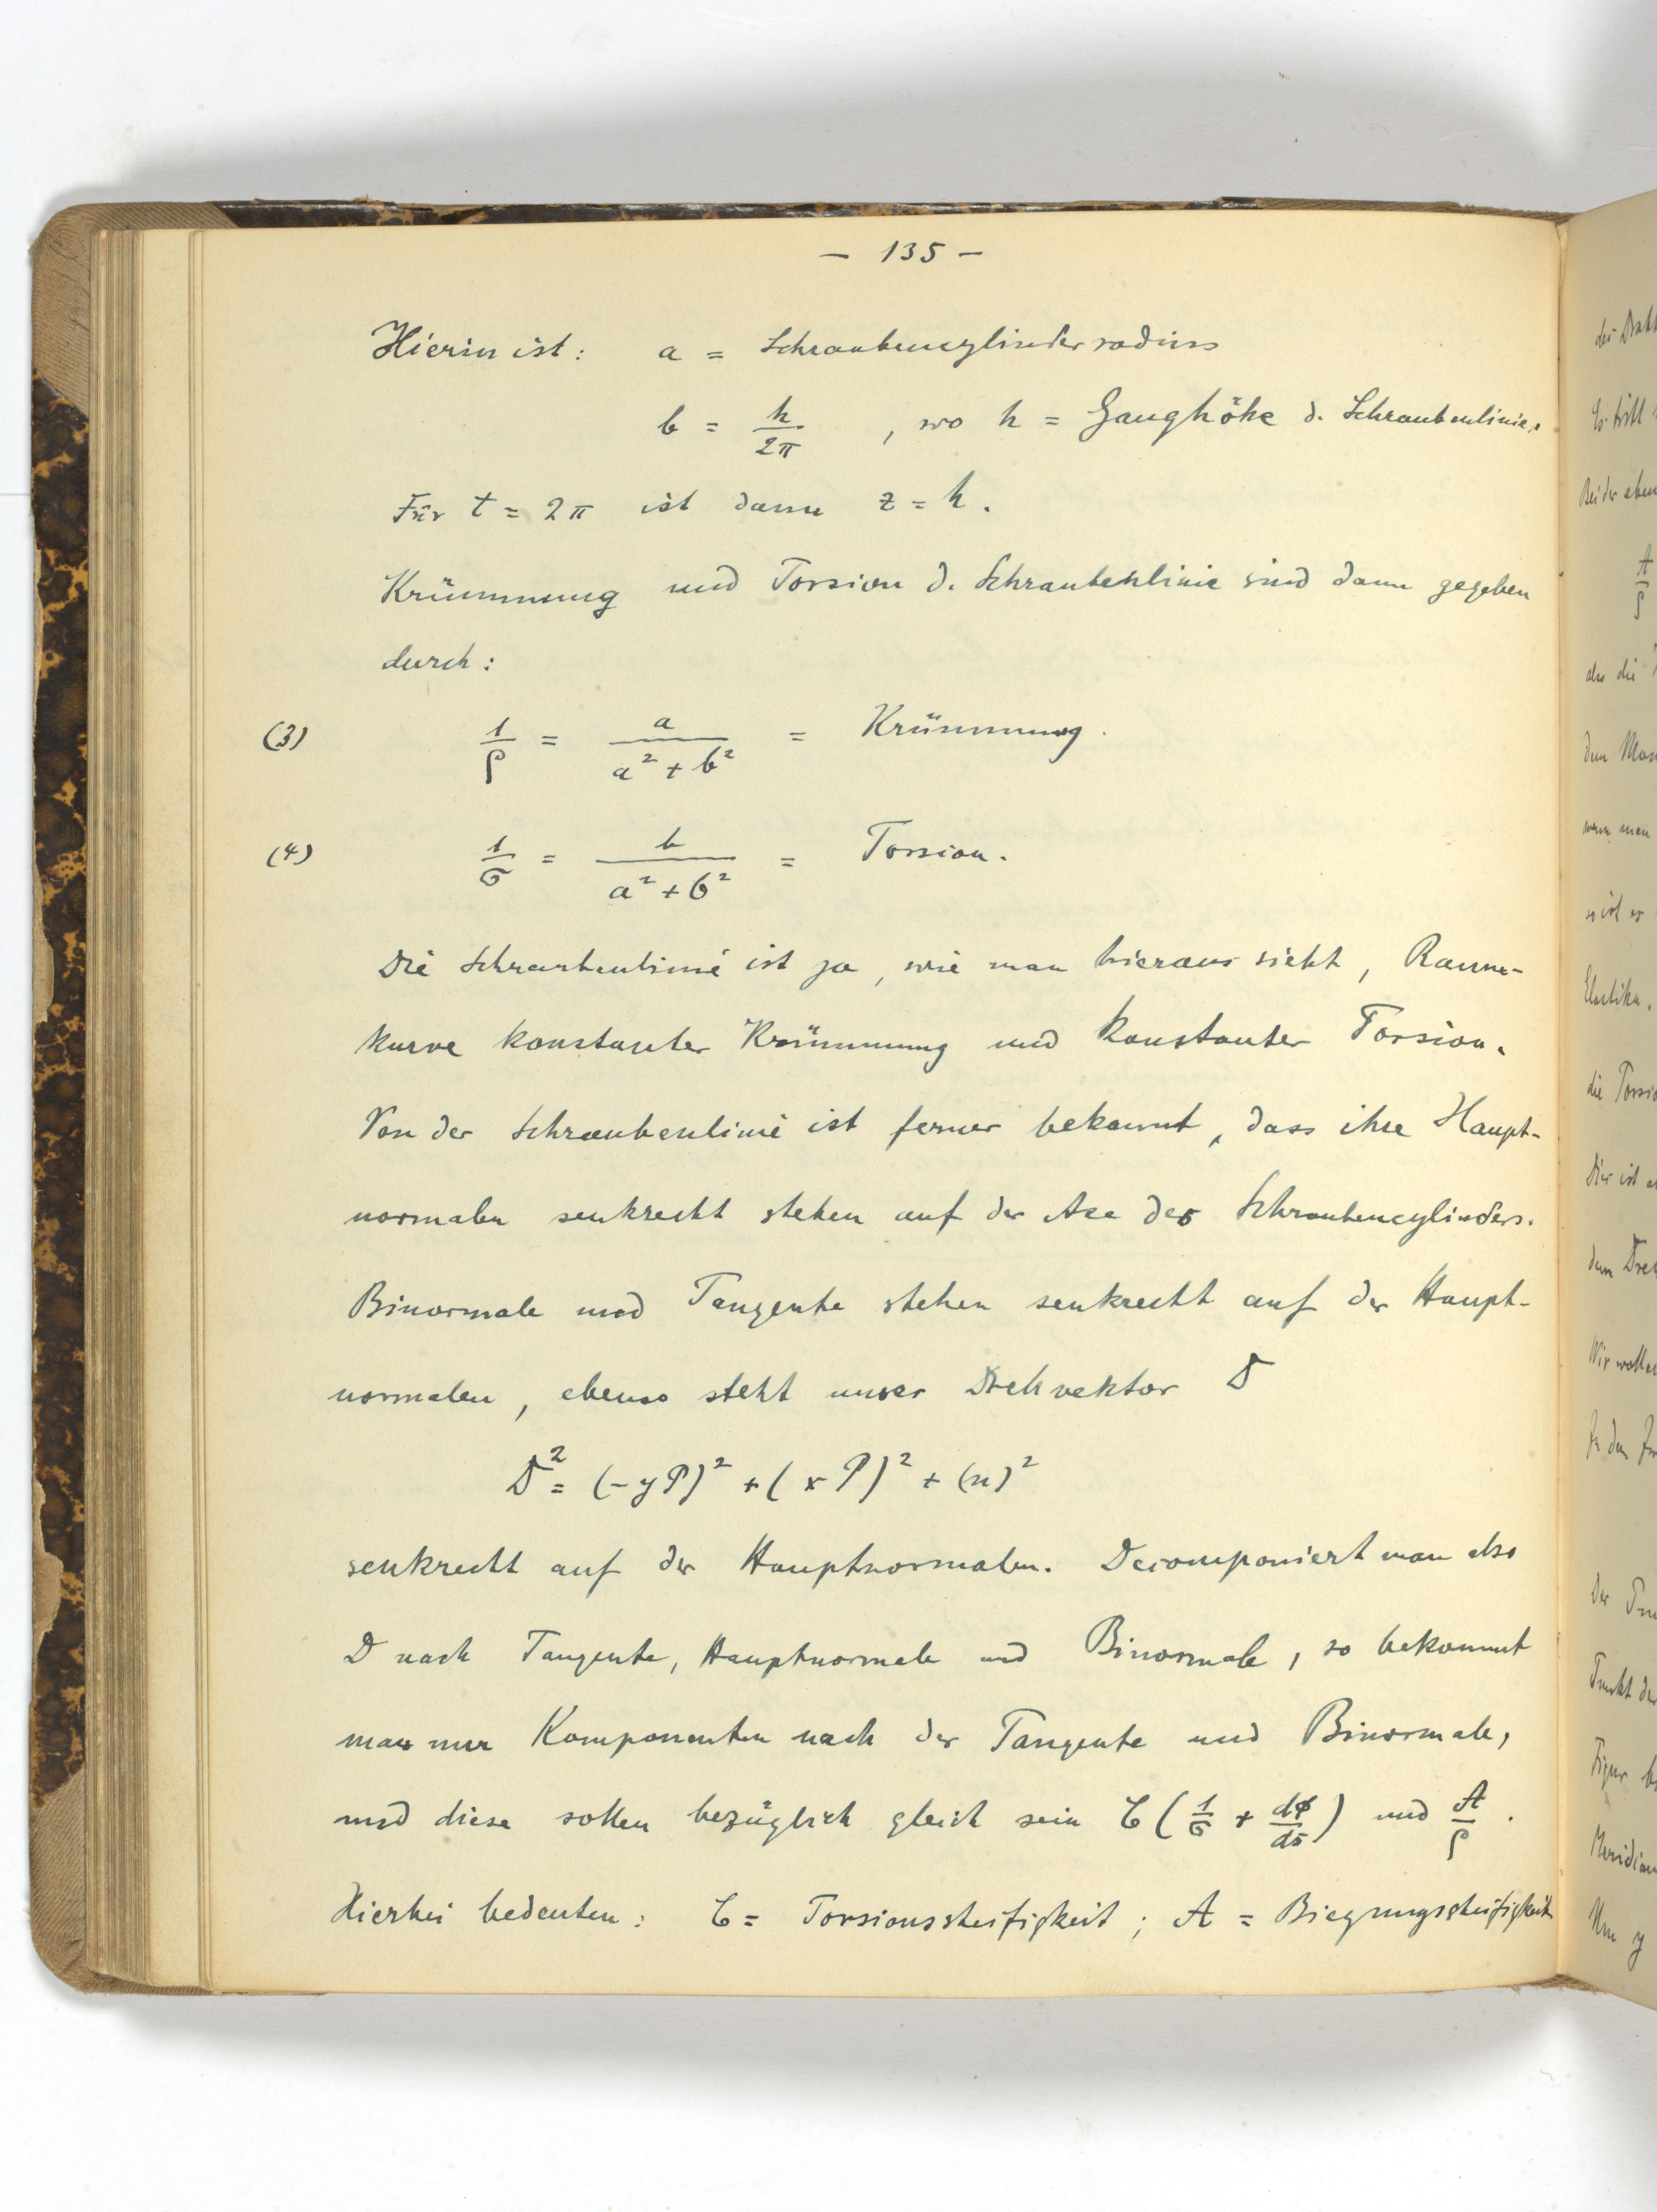 — 135 —
Hierin ist: a = Schraubencylinderradius
b = h/2π , wo h = Ganghöhe d. Schraubenlinie.
Für t = 2π ist dann z = h.
Krümmung und Torsion d. Schraubenlinie sind dann gegeben
durch:
(3) 1/ρ = a/(a² + b²) = Krümmung.
(4) 1/σ = b/(a² + b²) = Torsion.
Die Schraubenlinie ist ja, wie man hieraus sieht, Raum-
kurve konstanter Krümmung und konstanter Torsion.
Von der Schraubenlinie ist ferner bekannt, dass ihre Haupt-
normalen senkrecht stehen auf der Axe des Schraubencylinders.
Binormale und Tangente stehen senkrecht auf der Haupt-
normalen, ebenso steht unser Drehvektor D
D² = (-yP)² + (xP)² + (n)²
senkrecht auf der Hauptnormalen. Decomponiert man also
D nach Tangente, Hauptnormale und Binormale, so bekommt
man nur Komponenten nach der Tangente und Binormale,
und diese sollen bezüglich gleich sein C(1/σ + dφ/ds) und A/ρ.
Hierbei bedeuten: C = Torsionssteifigkeit; A = Biegungssteifigkeit
der
Es tritt
Bei der eben
A/ρ
also die
dem
wenn man
so ist es
Elastika.
die
Hier ist
dem
Wir wollen
In den
Der
Punkt der
Figur
Um y